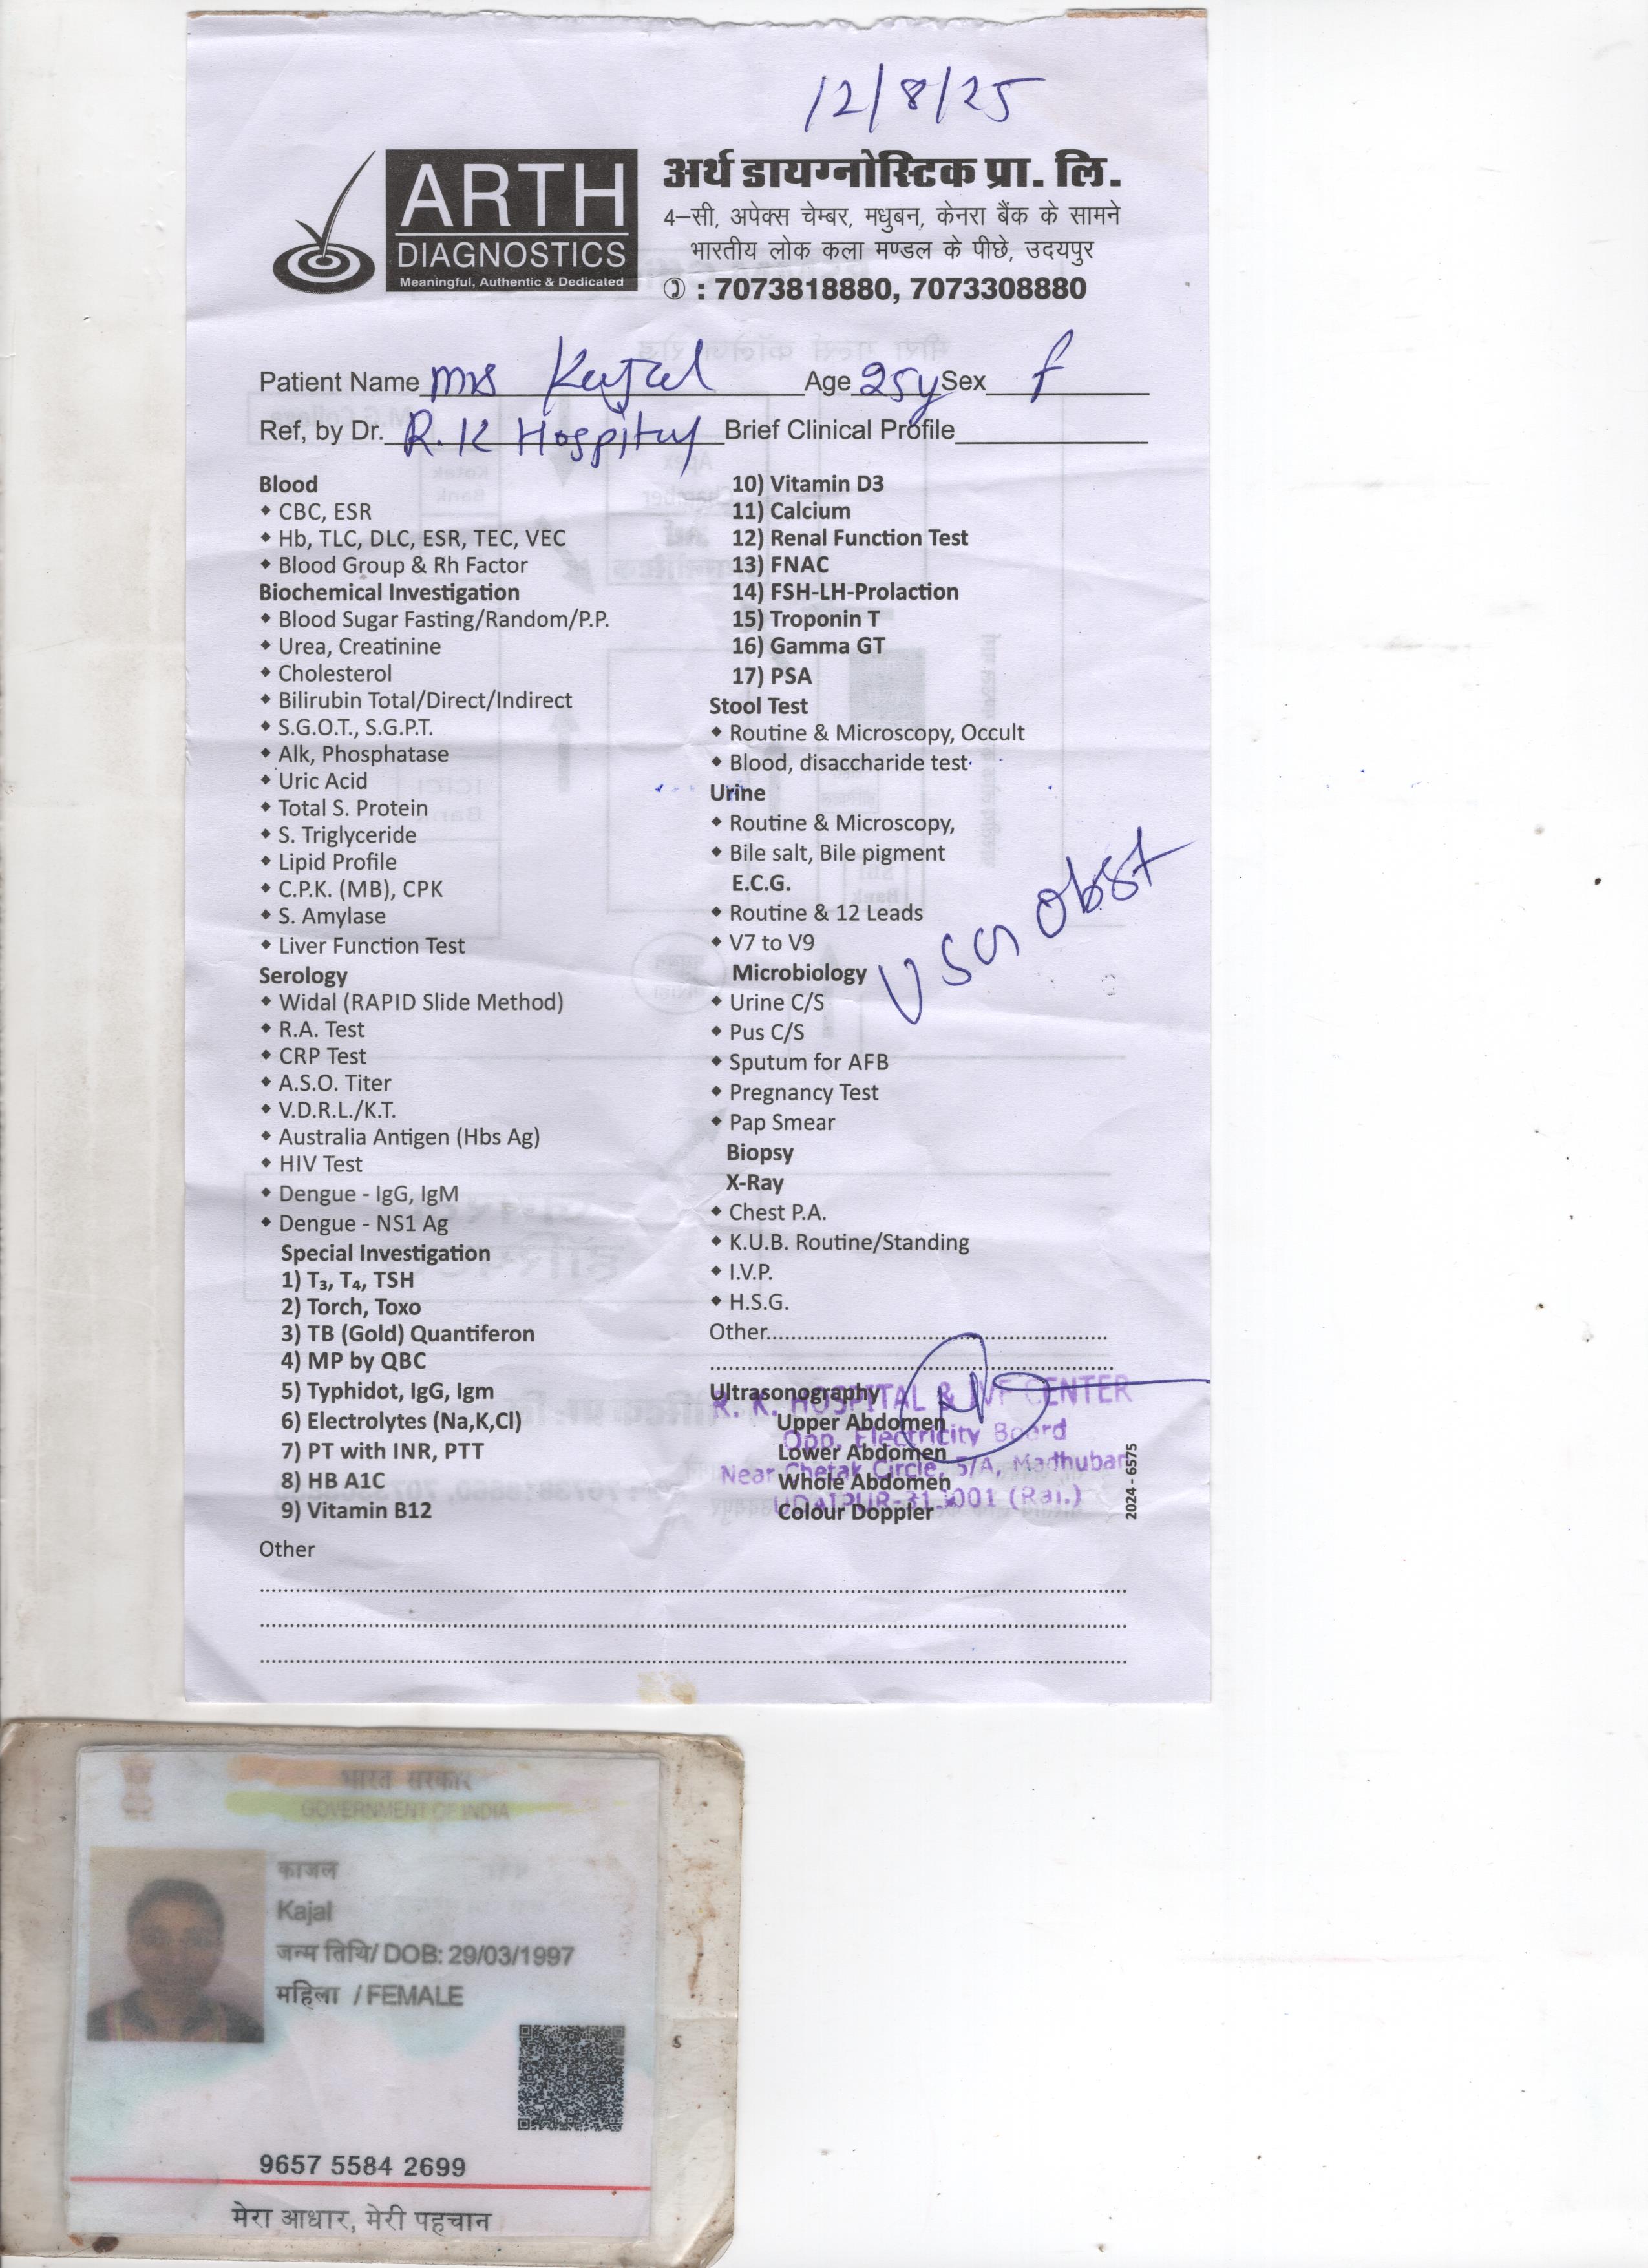 12/8/25
ARTH
DIAGNOSTICS
Meaningful, Authentic & Dedicated
अर्थ डायग्नोस्टिक प्रा. लि.
4–सी, अपेक्स चेम्बर, मधुबन, केनरा बैंक के सामने
भारतीय लोक कला मण्डल के पीछे, उदयपुर
✆ : 7073818880, 7073308880
Patient Name Mrs Kajal Age 25y Sex f
Ref, by Dr. R.K Hospital Brief Clinical Profile
Blood
• CBC, ESR
• Hb, TLC, DLC, ESR, TEC, VEC
• Blood Group & Rh Factor
Biochemical Investigation
• Blood Sugar Fasting/Random/P.P.
• Urea, Creatinine
• Cholesterol
• Bilirubin Total/Direct/Indirect
• S.G.O.T., S.G.P.T.
• Alk, Phosphatase
• Uric Acid
• Total S. Protein
• S. Triglyceride
• Lipid Profile
• C.P.K. (MB), CPK
• S. Amylase
• Liver Function Test
Serology
• Widal (RAPID Slide Method)
• R.A. Test
• CRP Test
• A.S.O. Titer
• V.D.R.L./K.T.
• Australia Antigen (Hbs Ag)
• HIV Test
• Dengue - IgG, IgM
• Dengue - NS1 Ag
Special Investigation
1) T₃, T₄, TSH
2) Torch, Toxo
3) TB (Gold) Quantiferon
4) MP by QBC
5) Typhidot, IgG, Igm
6) Electrolytes (Na,K,Cl)
7) PT with INR, PTT
8) HB A1C
9) Vitamin B12
10) Vitamin D3
11) Calcium
12) Renal Function Test
13) FNAC
14) FSH-LH-Prolaction
15) Troponin T
16) Gamma GT
17) PSA
Stool Test
• Routine & Microscopy, Occult
• Blood, disaccharide test
Urine
• Routine & Microscopy,
• Bile salt, Bile pigment
E.C.G.
• Routine & 12 Leads
• V7 to V9
Microbiology
• Urine C/S
• Pus C/S
• Sputum for AFB
• Pregnancy Test
• Pap Smear
Biopsy
X-Ray
• Chest P.A.
• K.U.B. Routine/Standing
• I.V.P.
• H.S.G.
Other
USG Obst
Ultrasonography
Upper Abdomen
Lower Abdomen
Whole Abdomen
Colour Doppler
R. K. HOSPITAL & IVF CENTER
Opp. Electricity Board
Near Chetak Circle, 5/A, Madhuban
UDAIPUR-313001 (Raj.)
2024 - 6575
Other
भारत सरकार
GOVERNMENT OF INDIA
काजल
Kajal
जन्म तिथि/ DOB: 29/03/1997
महिला / FEMALE
9657 5584 2699
मेरा आधार, मेरी पहचान